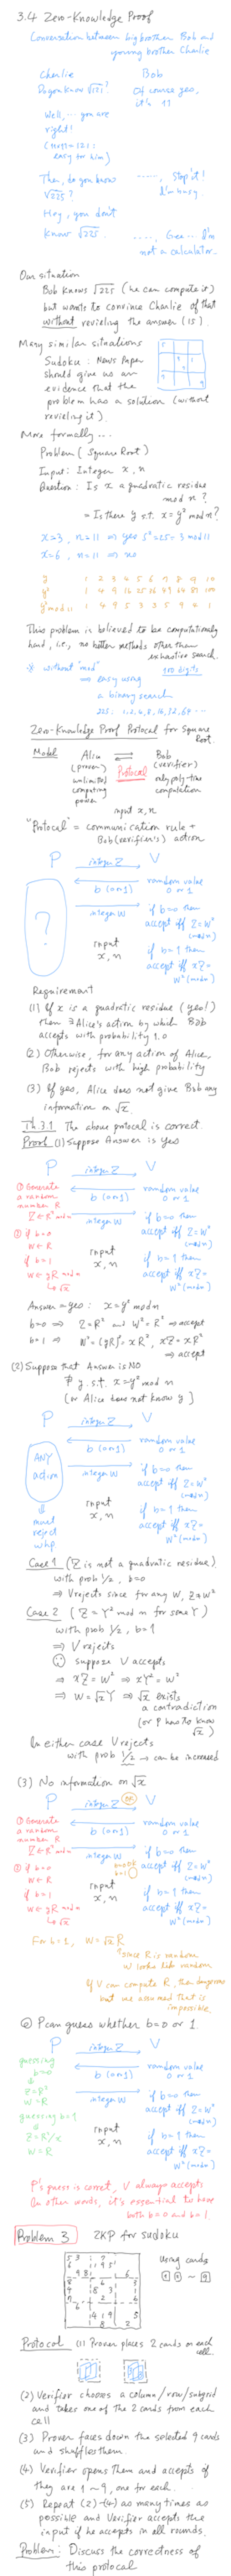 3.4 Zero-Knowledge Proof
Conversation between big brother Bob and
young brother Charlie
Charlie Bob
Do you know √121? Of course yes,
it's 11
Well, ... you are
right!
(11×11=121:
easy for him)
Then, do you know ....., Stop it!
√225? I'm busy.
Hey, you don't
know √225. ....., Gee... I'm
not a calculator.
Our situation
Bob knows √225 (he can compute it)
but wants to convince Charlie of that
without revieling the answer (15).
Many similar situations
Sudoku: News Paper
should give us an
evidence that the
problem has a solution (without
revieling it).
More formally...
Problem (Square Root)
Input: Integer x, n
Question: Is x a quadratic residue
mod n?
= Is there y s.t. x=y² mod n?
x=3, n=11 ⇒ yes 5²=25=3 mod 11
x=6, n=11 ⇒ no
y 1 2 3 4 5 6 7 8 9 10
y² 1 4 9 16 25 36 49 64 81 100
y² mod 11 1 4 9 5 3 3 5 9 4 1
This problem is believed to be computationally
hard, i.e., no better methods other than
exhaustive search.
※ without "mod" 100 digits
⇒ easy using
a binary search
225: 1, 2, 4, 8, 16, 32, 64 ...
Zero-Knowledge Proof Protocol for Square
Root.
Model Alice ⇄ Bob
(prover) Protocol (verifier)
unlimited only poly-time
computing computation
power
input x, n
"Protocol" = communication rule +
Bob (verifier's) action
P integer Z V
b (0 or 1) random value
0 or 1
integer W if b=0 then
accept iff Z=W²
(mod n)
?
input
x, n
if b=1 then
accept iff xZ=
W² (mod n)
Requirement
(1) If x is a quadratic residue (yes!)
then ∃ Alice's action by which Bob
accepts with probability 1.0
(2) Otherwise, for any action of Alice,
Bob rejects with high probability
(3) If yes, Alice does not give Bob any
information on √x.
Th.3.1 The above protocol is correct
Proof (1) Suppose Answer is yes
P integer Z V
① Generate
a random
number R
Z ← R² mod n
b (0 or 1) random value
0 or 1
② if b=0
W ← R
if b=1
W ← yR mod n
↳ √x
integer W if b=0 then
accept iff Z=W²
(mod n)
input
x, n
if b=1 then
accept iff xZ=
W² (mod n)
Answer = yes: x=y² mod n
b=0 ⇒ Z=R² and W²=R² ⇒ accept
b=1 ⇒ W²=(yR)²=xR², xZ=xR²
⇒ accept
(2) Suppose that Answer is NO
∄ y s.t. x=y² mod n
(or Alice does not know y)
P integer Z V
b (0 or 1) random value
0 or 1
ANY
action
integer W if b=0 then
accept iff Z=W²
(mod n)
input
x, n
⇓
must
reject
whp
if b=1 then
accept iff xZ=
W² (mod n)
Case 1 (Z is not a quadratic residue)
with prob 1/2, b=0
⇒ V rejects since for any W, Z≠W²
Case 2 (Z=Y² mod n for some Y)
with prob 1/2, b=1
⇒ V rejects
suppose V accepts
⇒ xZ=W² ⇒ xY²=W²
⇒ W=√x Y ⇒ √x exists
a contradiction
(or P has to know
√x)
In either case V rejects
with prob 1/2 → can be increased
(3) No information on √x
P integer Z OK V
① Generate
a random
number R
Z ← R² mod n
b (0 or 1) random value
0 or 1
② if b=0
W ← R
if b=1
W ← yR mod n
↳ √x
integer W if b=0 then
b=0 OK accept iff Z=W²
b=1 (mod n)
input
x, n
if b=1 then
accept iff xZ=
W² (mod n)
For b=1, W=√x R
since R is random
W looks like random
If V can compute R, then dangerous
but we assumed that is
impossible.
◎ P can guess whether b=0 or 1
P integer Z V
guessing
b=0
Z=R²
W=R
guessing b=1
Z=R²/x
W=R
b (0 or 1) random value
0 or 1
integer W if b=0 then
accept iff Z=W²
(mod n)
input
x, n
if b=1 then
accept iff xZ=
W² (mod n)
P's guess is correct, V always accepts
In other words, it's essential to have
both b=0 and b=1.
Problem 3 ZKP for sudoku
Using cards
1 1 ~ 9
Protocol (1) Prover places 2 cards on each
cell
(2) Verifier chooses a column/row/subgrid
and takes one of the 2 cards from each
cell
(3) Prover faces down the selected 9 cards
and shuffles them.
(4) Verifier opens them and accepts if
they are 1~9, one for each.
(5) Repeat (2)-(4) as many times as
possible and Verifier accepts the
input if he accepts in all rounds.
Problem: Discuss the correctness of
this protocol